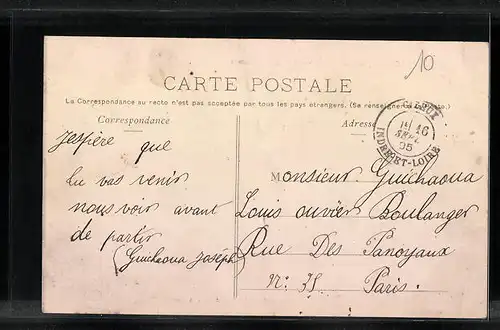 10
CARTE POSTALE
La Correspondance au recto n'est pas acceptée par tous les pays étrangers. (Se renseigner à la Poste.)
Correspondance
Adresse
16
SEPT
05
INDRE-ET-LOIRE
J'espère que
tu vas venir
nous voir avant
de partir
(Guichaoua Joseph)
Monsieur Guichaoua
Louis ouvrier Boulanger
Rue Des Panoyaux
N: 35
Paris.